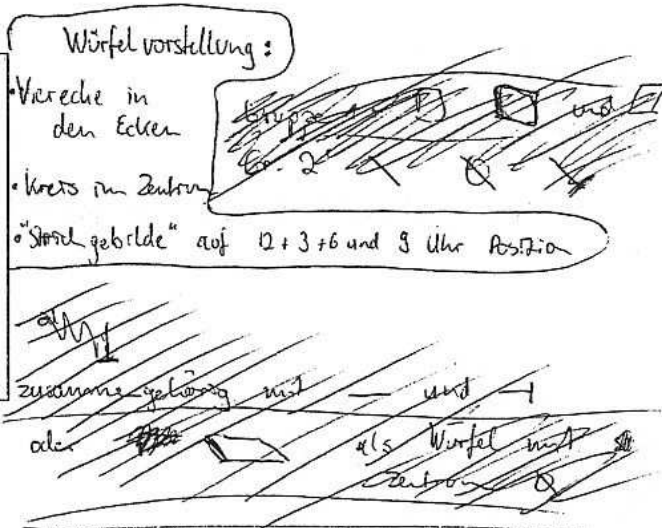 Würfelvorstellung:
• Vierecke in
den Ecken
Gruppe 1: und
Gr. 2:
• Kreis im Zentrum
• "Strichgebilde" auf 12 + 3 + 6 und 9 Uhr Position
zusammengehörig mit — und ⊣
oder als Würfel mit
Zentrum